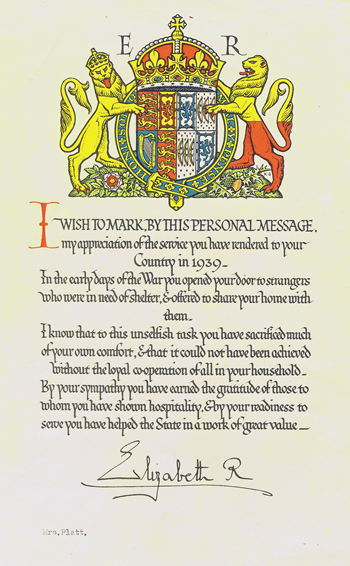 E R
I WISH TO MARK, BY THIS PERSONAL MESSAGE,
my appreciation of the service you have rendered to your
Country in 1939_
In the early days of the War you opened your door to strangers
who were in need of shelter, & offered to share your home with
them_
I know that to this unselfish task you have sacrificed much
of your own comfort, & that it could not have been achieved
without the loyal co-operation of all in your household_
By your sympathy you have earned the gratitude of those to
whom you have shown hospitality, & by your readiness to
serve you have helped the State in a work of great value_
Elizabeth R
Mrs. Platt.